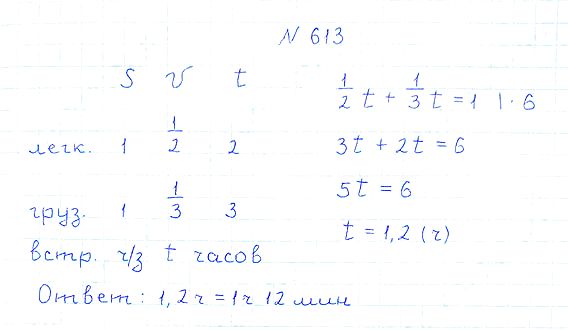 N 613
S v t
легк. 1 1/2 2
груз. 1 1/3 3
встр. ч/з t часов
1/2 t + 1/3 t = 1 | · 6
3t + 2t = 6
5t = 6
t = 1,2 (ч)
Ответ: 1,2ч = 1ч 12 мин